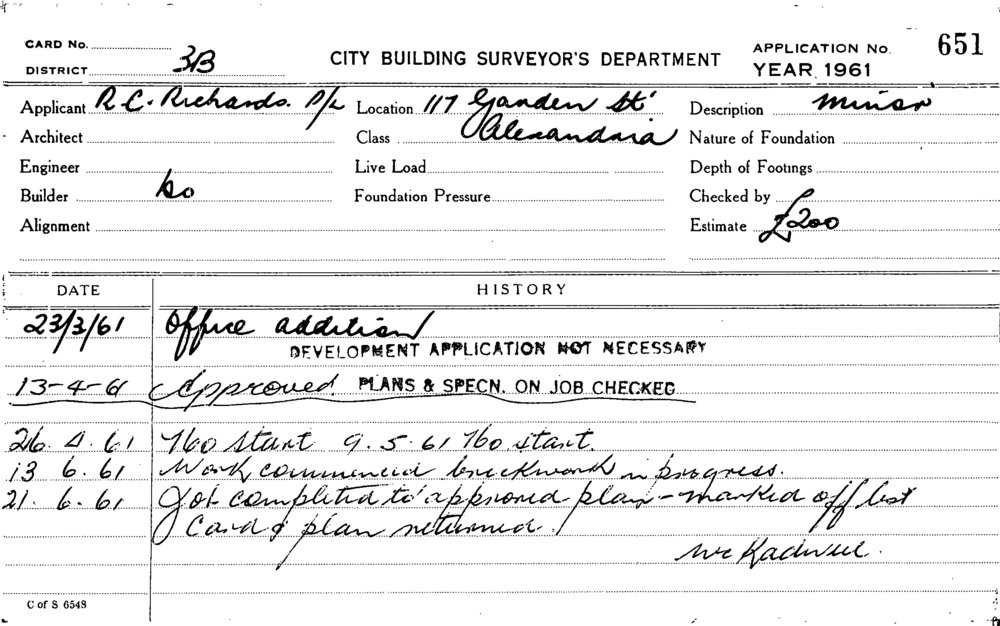 CARD No.
DISTRICT 3B
CITY BUILDING SURVEYOR'S DEPARTMENT
APPLICATION No. 651
YEAR 1961
Applicant R.C. Richards. P/L Location 117 Garden St' Description minor
Architect Class Alexandria Nature of Foundation
Engineer Live Load Depth of Footings
Builder do Foundation Pressure Checked by
Alignment Estimate £200
DATE HISTORY
23/3/61 Office addition
DEVELOPMENT APPLICATION NOT NECESSARY
13-4-61 Approved. PLANS & SPECN. ON JOB CHECKED
26.4.61 No start 9.5.61 No start.
13 6.61 Work commenced brickwork in progress.
21.6.61 Job completed to approved plan - marked off list
Card & plan returned.
C of S 6548